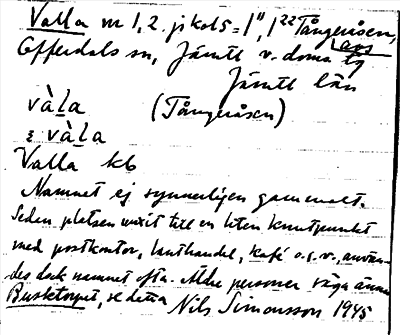 Valla m 1, 2. jkol5 = 1", 1²² Tångeråsen,
avs
Offerdals sn, Jämtl v. doms tg
Jämtl län
vàla (Tångeråsen)
vàla
Valla kb
Namnet ej synnerligen gammalt.
Sedan platsen växit till en liten knutpunkt
med postkontor, lanthandel, kafé o.s.v., använ-
des dock namnet ofta. Äldre personer säga ännu
Busktorpet, se detta Nils Simonsson 1945